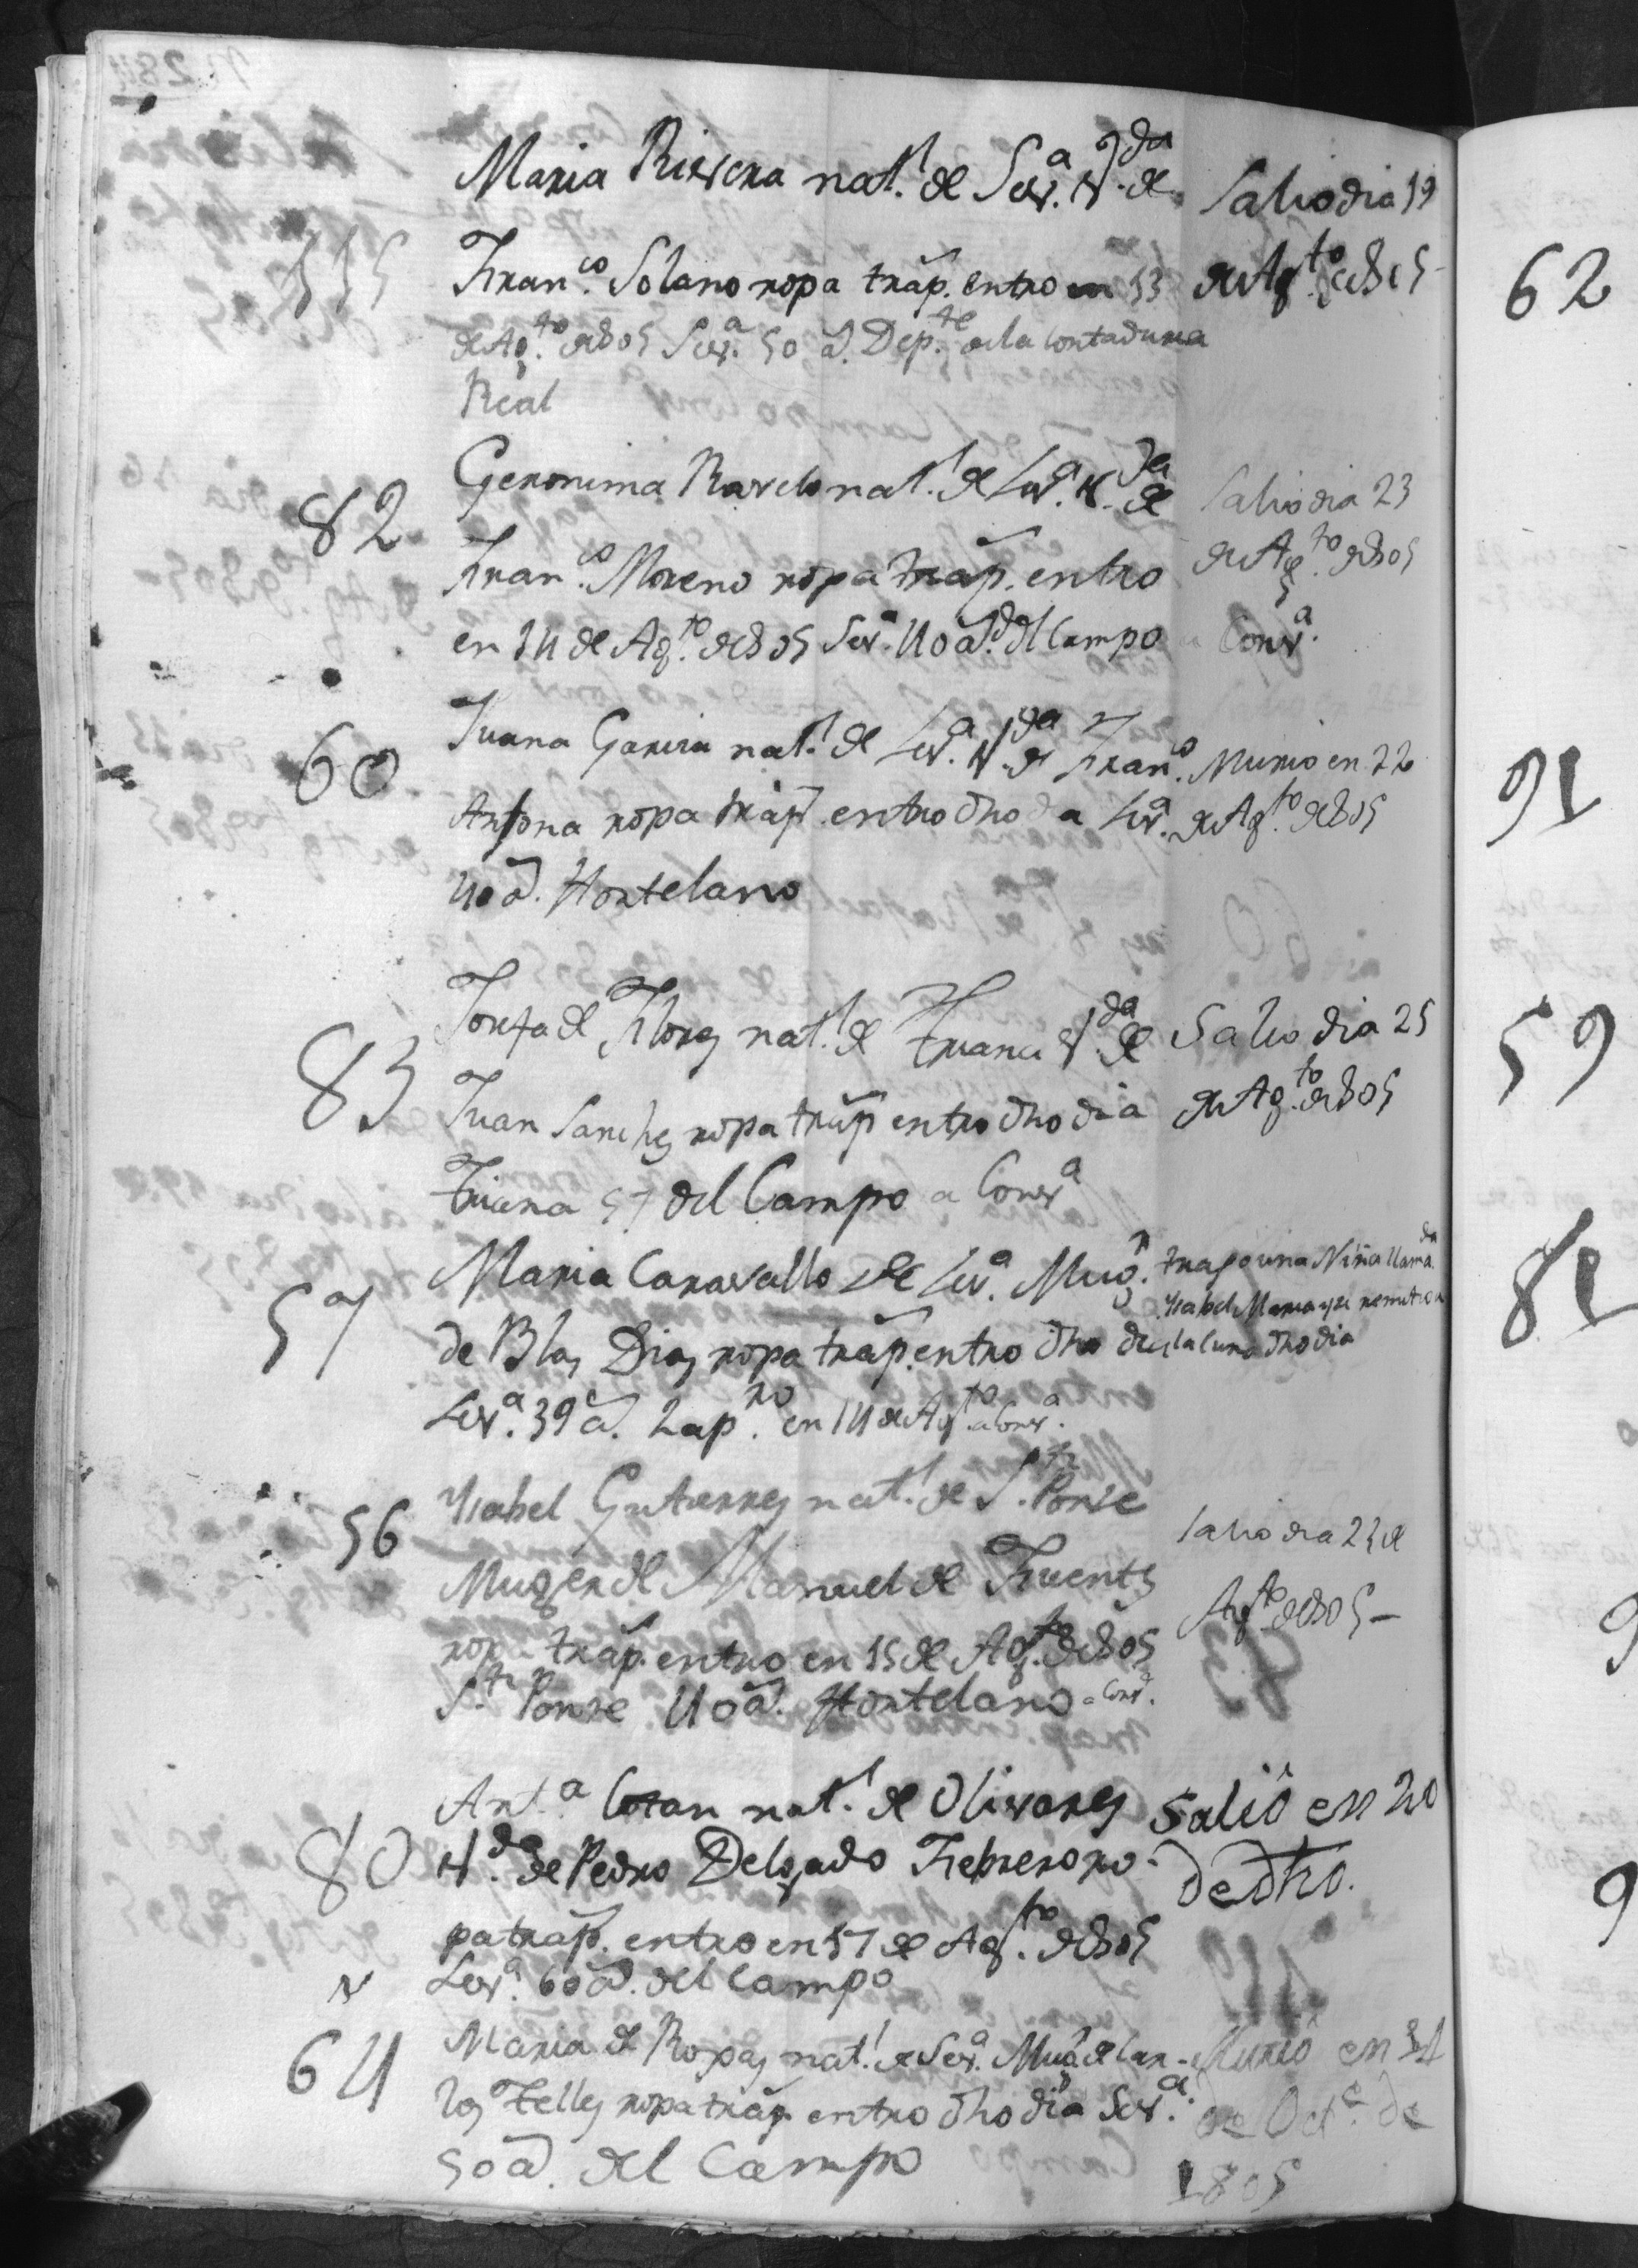 Maria Rivera nat.l de Sev.a V.da de
Fran.co Solano ropa trap. entro en 13
de Ag.to de 805 Sev.a 50 a. Dep.te de la Contaduria
Real
Salio dia 19
de Ag.to de 805
115
82
Geronima Ravelo nat.l de Sev.a V.da de
Fran.co Moreno ropa trap. entro
en 14 de Ag.to de 805 Sev.a 40 a.s del Campo
Salio dia 23
de Ag.to de 805
a Conv.a
60
Juana Garcia nat.l de Sev.a V.da de Fran.co
ropa trap. entro dho dia Sev.a
40 a. Hortelano
Murio en 22
de Ag.to de 805
83
Josefa de Flores nat.l de Triana V.da de
Juan Sanches ropa trap entro dho dia
Triana 57 del Campo a Conv.a
Salio dia 25
de Ag.to de 805
57
Maria Caravallo de Sev.a Mug.r
de Blas Dias ropa trap. entro dho dia
Sev.a 39 a. Zap.ro en 14 de Ag.to a Conv.a
trajo una Niña llama.da
Ysabel Maria y se remitio a
la cuna dho dia
56
Ysabel Gutierres nat.l de S.ti Ponse
Muger de Manuel de Fuentes
ropa trap. entro en 15 de Ag.to de 805
S.ti Ponse 40 a. Hortelano a Conv.a
Salio dia 23 de
Ag.to de 805
80
Ant.a nat.l de Olivares
V.da de Pedro Delgado Febrero ro-
pa trap. entro en 17 de Ag.to de 805
Sev.a 60 a. del Campo
Salió en 20
de dho.
64
Maria de Ropas nat.l de Sev.a Mug.r de Car-
los Telles ropa trap. entro dho dia Sev.a
50 a. del Campo
Murió en
de Oct.e de
1805
62
91
59
82
9
9